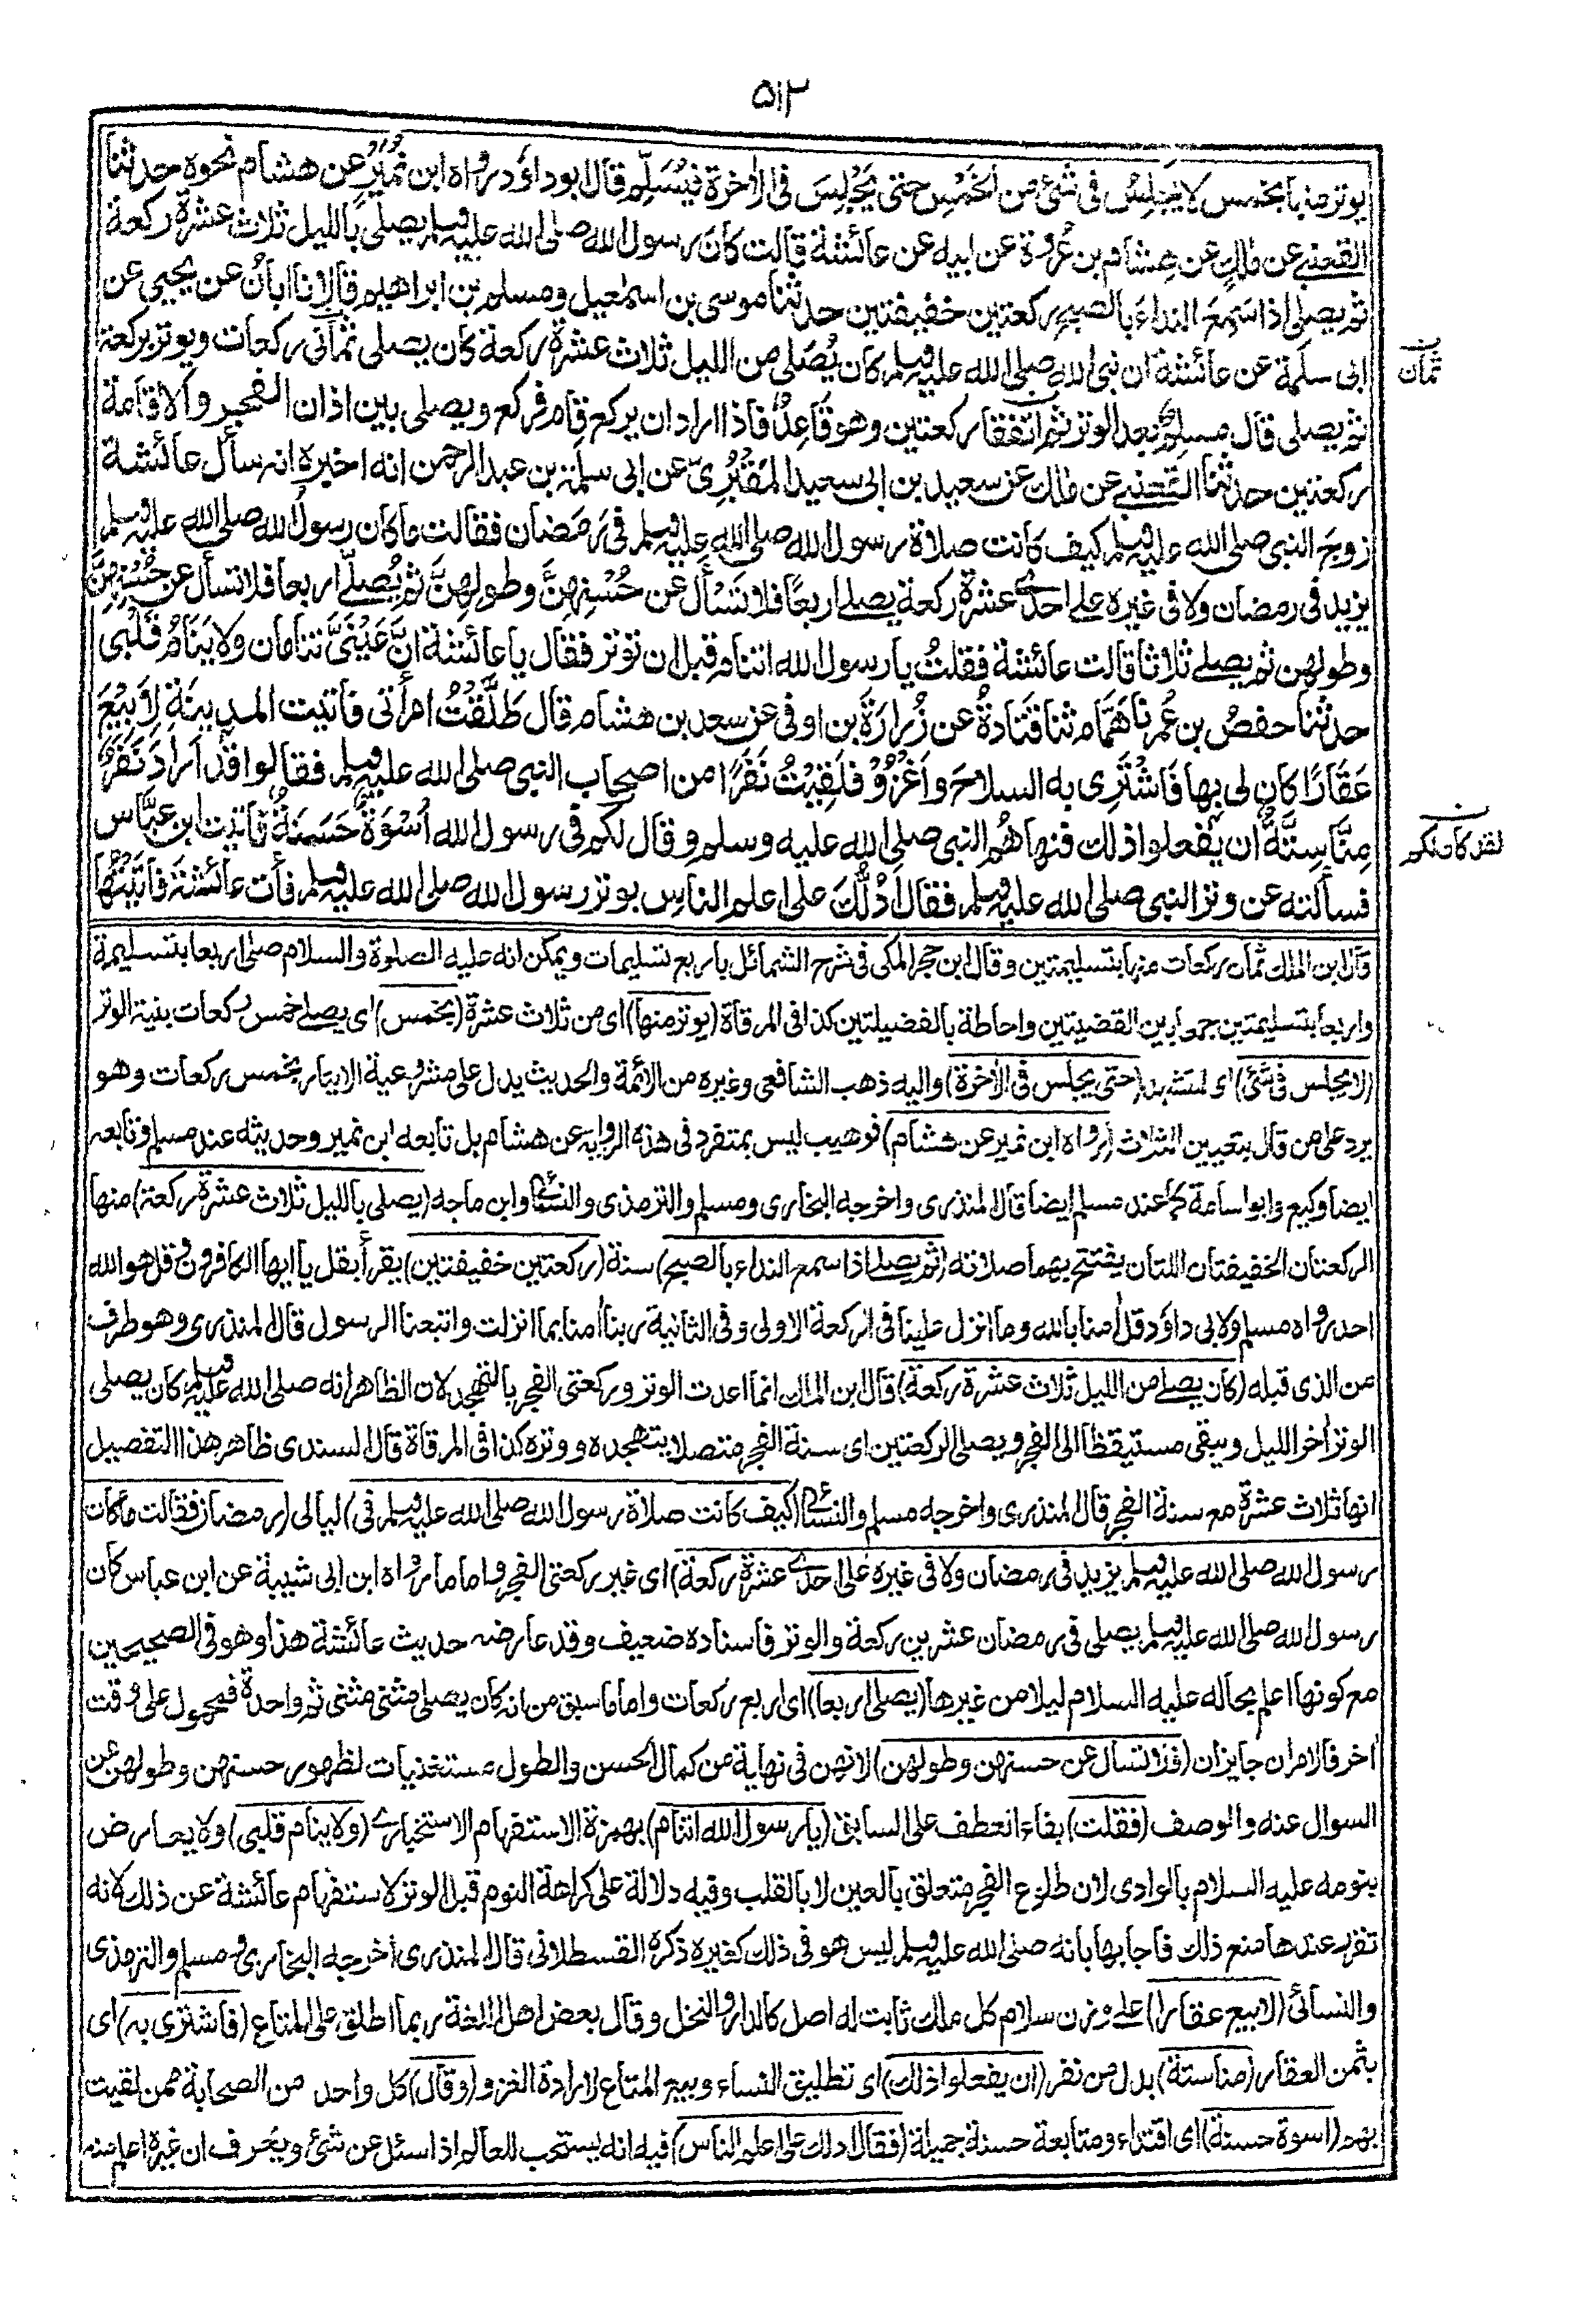 ٥١٢
يوتر منها بخمس لا يَجْلِسُ فى شئ من الخَمْسِ حتى يَجْلِسَ فى الآخرة فيُسَلِّم قال ابوداؤد رواه ابن نُمَيرٍ عن هشام نحوه حدثنا
القعنبى عن مالك عن هِشام بن عُروة عن ابيه عن عائشة قالت كان رسول الله صلى الله عليه وسلم يصلى بالليل ثلاث عشرة ركعة
ثم يصلى اذا سَمِعَ النداءَ بالصبح ركعتين خفيفتين حدثنا موسى بن اسمعيل ومسلم بن ابراهيم قالا نا ابانُ عن يحيى عن
ابى سلَمة عن عائشة ان نبى الله صلى الله عليه وسلم كان يُصَلى من الليل ثلاث عشرة ركعة كان يصلى ثمانى ركعات ويوتر بركعة
ثمان
ثم يصلى قال مسلم بعد الوتر ثم اتفقا ركعتين وهو قَاعِدٌ فاذا اراد ان يركع قام فركع ويصلى بين اذان الفجر والاقامة
ركعتين حدثنا القعنبى عن مالك عن سعيد بن ابى سعيد المَقْبُرِىّ عن ابى سلمة بن عبد الرحمن انه اخبره انه سأل عائشة
زوجَ النبى صلى الله عليه وسلم كيف كانت صلاة رسول الله صلى الله عليه وسلم فى رَمَضان فقالت ما كان رسولُ الله صلى الله عليه وسلم
يزيد فى رمضان ولا فى غيره على احدى عشرة ركعة يصلى اربعًا فلا تَسْأل عن حُسْنِهِنَّ وطولِهِنَّ ثم يُصلّى اربعا فلا تسأل عن حُسْنِهِنَّ
وطولهن ثم يصلى ثلاثا قالت عائشة فقلتُ يا رسول الله اتنام قبل ان تُوتر فقال يا عائشة انَّ عَيْنَىَّ تنامان ولا يَنَامُ قَلْبى
حدثنا حفصُ بن عُمر نا هَمَّام ثنا قَتَادةُ عن زُرارَةَ بن اوفى عن سعد بن هشام قال طَلَّقْتُ امرأتى فاتيت المدينةَ لِاَبيْعَ
عَقَارًا كان لى بها فَاَشْتَرِى به السلاحَ واَغْزُوْ فلَقِيْتُ نَفَرًا من اصحاب النبى صلى الله عليه وسلم فقالوا قد اَرادَ نَفَرٌ
مِنَّا سِتَّةٌ ان يَفعلوا ذلك فنهاهُم النبى صلى الله عليه وسلم وقال لكم فى رسول الله اُسْوَةٌ حَسَنَةٌ فاتيت ابن عبَّاس
لقد كان لكم
فسألته عن وتر النبى صلى الله عليه وسلم فقال اَدُلُّكَ على اعلم الناسِ بوتر رسول الله صلى الله عليه وسلم فأت عائشةَ فاَتَيْتُها
قال ابن الملك ثمان ركعات منها بتسليمتين وقال ابن حجر المكى فى شرح الشمائل باربع تسليمات ويمكن انه عليه الصلوة والسلام صلى اربعا بتسليمة
واربعا بتسليمتين جمعا بين القضيتين واحاطة بالفضيلتين كذا فى المرقاة (يوتر منها) اى من ثلاث عشرة (بخمس) اى يصلى خمس ركعات بنية الوتر
(لا يجلس فى شئ) اى للتشهد (حتى يجلس فى الآخرة) واليه ذهب الشافعى وغيره من الائمة والحديث يدل على مشروعية الايتار بخمس ركعات وهو
يرد على من قال بتعيين الثلاث (رواه ابن نمير عن هشام) فوهيب ليس بمتفرد فى هذه الرواية عن هشام بل تابعه ابن نمير وحديثه عند مسلم وتابعه
ايضا وكيع وابو اسامة كما عند مسلم ايضا قال المنذرى واخرجه البخارى ومسلم والترمذى والنسائى وابن ماجه (يصلى بالليل ثلاث عشرة ركعة) منها
الركعتان الخفيفتان اللتان يفتتح بهما صلاته (ثم يصلى اذا سمع النداء بالصبح) سنة (ركعتين خفيفتين) يقرأ بقل يا ايها الكافرون وقل هو الله
احد رواه مسلم ولابى داؤد قل امنا بالله وما انزل علينا فى الركعة الاولى وفى الثانية ربنا امنا بما انزلت واتبعنا الرسول قال المنذرى وهو طرف
من الذى قبله (كان يصلى من الليل ثلاث عشرة ركعة) قال ابن الملك انما اعدت الوتر وركعتى الفجر بالتهجد لان الظاهر انه صلى الله عليه وسلم كان يصلى
الوتر اخر الليل ويبقى مستيقظا الى الفجر ويصلى الركعتين اى سنة الفجر متصلا بتهجده ووتره كذا فى المرقاة قال السندى ظاهر هذا التفصيل
انها ثلاث عشرة مع سنة الفجر قال المنذرى واخرجه مسلم والنسائى (كيف كانت صلاة رسول الله صلى الله عليه وسلم فى) ليالى (رمضان فقالت ما كان
رسول الله صلى الله عليه وسلم يزيد فى رمضان ولا فى غيره على احدى عشرة ركعة) اى غير ركعتى الفجر واما ما رواه ابن ابى شيبة عن ابن عباس كان
رسول الله صلى الله عليه وسلم يصلى فى رمضان عشرين ركعة والوتر فاسناده ضعيف وقد عارضه حديث عائشة هذا وهو فى الصحيحين
مع كونها اعلم بحاله عليه السلام ليلا من غيرها (يصلى اربعا) اى اربع ركعات واما ما سبق من انه كان يصلى مثنى مثنى ثم واحدة فمحمول على وقت
اخر فالامران جايزان (فلا تسأل عن حسنهن وطولهن) لانهن فى نهاية من كمال الحسن والطول مستغنيات لظهور حسنهن وطولهن عن
السوال عنه والوصف (فقلت) بفاء العطف على السابق (يا رسول الله اتنام) بهمزة الاستفهام الاستخبارى (ولا ينام قلبى) ولا يعارض
بنومه عليه السلام بالوادى لان طلوع الفجر متعلق بالعين لا بالقلب وفيه دلالة على كراهة النوم قبل الوتر لاستفهام عائشة عن ذلك لانه
تقرر عندها منع ذلك فاجابها بانه صلى الله عليه وسلم ليس هو فى ذلك كغيره ذكره القسطلانى قال المنذرى اخرجه البخارى ومسلم والترمذى
والنسائى (لابيع عقارا) على وزن سلام كل ملك ثابت له اصل كالدار والنخل وقال بعض اهل اللغة ربما اطلق على المتاع (فاشترى به) اى
بثمن العقار (منا ستة) بدل من نفر (ان يفعلوا ذلك) اى تطليق النساء وبيع المتاع لارادة الغزو (وقال) كل واحد من الصحابة ممن لقيت
بهم (اسوة حسنة) اى اقتداء ومتابعة حسنة جميلة (فقال ادلك على اعلم الناس) فيه انه يستحب للعالم اذا سئل عن شئ ويعرف ان غيره اعلم منه